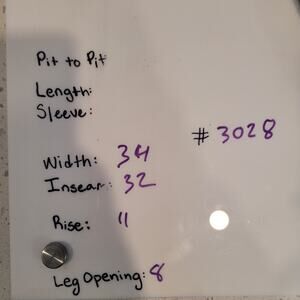 Pit to Pit
Length:
Sleeve:
# 3028
Width: 34
Insear: 32
Rise: 11
Leg Opening: 8